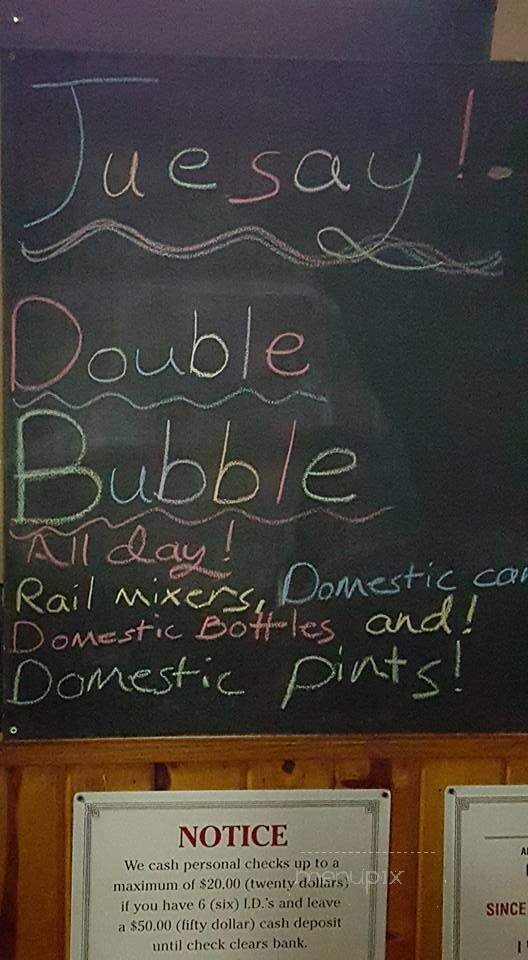 Tuesay!.
Double
Bubble
All day!
Rail mixers, Domestic can
Domestic Bottles and!
Domestic pints!
NOTICE
We cash personal checks up to a
maximum of $20.00 (twenty dollars)
if you have 6 (six) I.D.'s and leave
a $50.00 (fifty dollar) cash deposit
until check clears bank.
SINCE
menupix